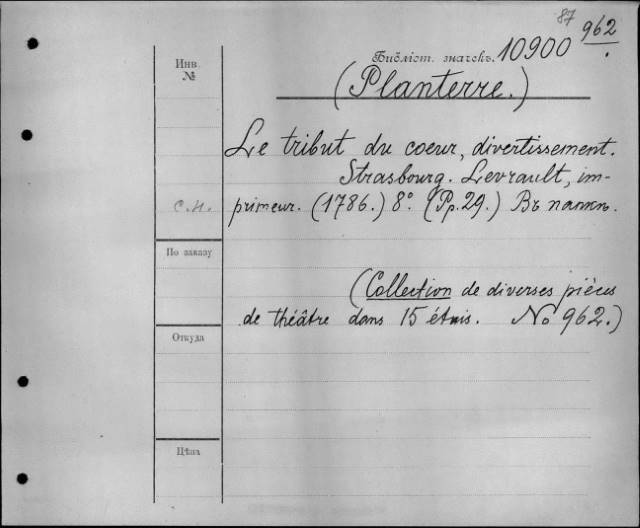 87
962
Инв.
№
Библіот. значекъ. 10900
(Planterre.)
Le tribut du coeur, divertissement.
Strasbourg. Levrault, im-
С.Н. primeur. (1786.) 8°. (Pp. 29.) Въ папкѣ.
По заказу
(Collection de diverses pièces
de théâtre dans 15 étuis. No 962.)
Откуда
Цѣна